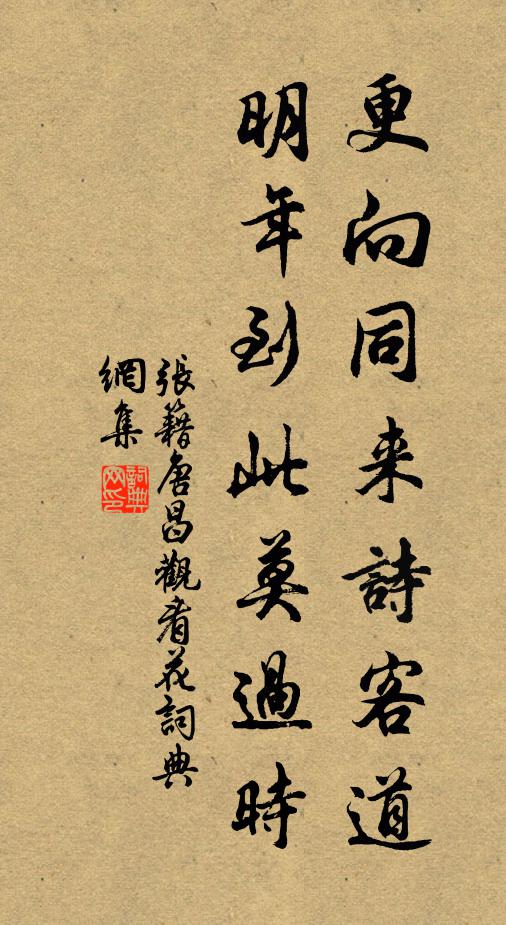 更向同来詩客道
明年到此莫過時
張籍唐昌觀看花詞典
網集
詞典
网印